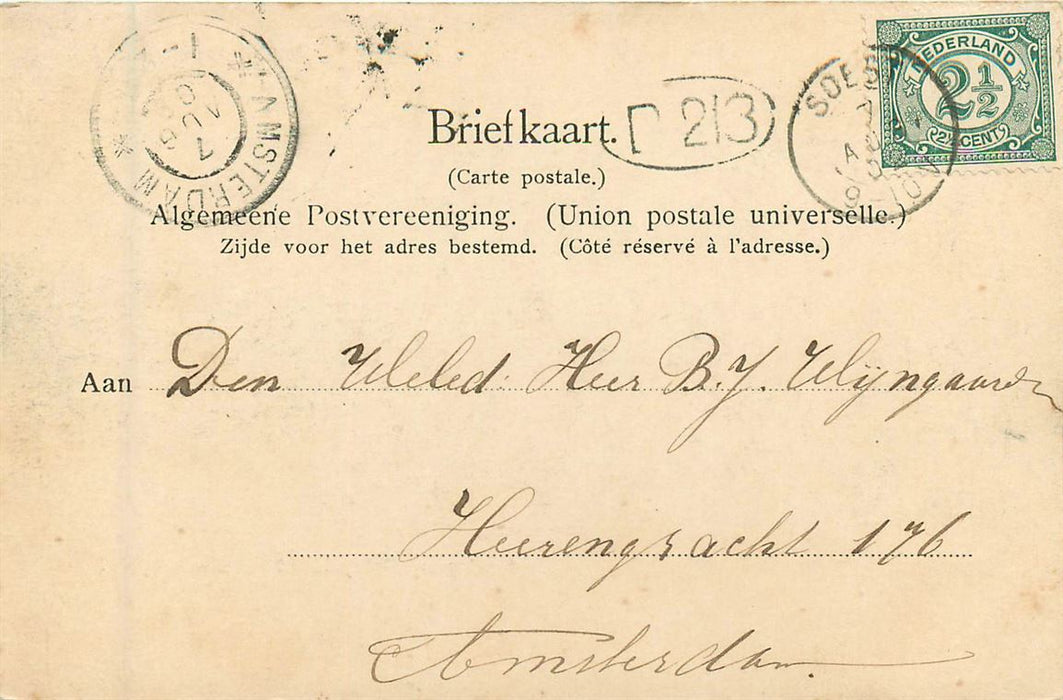 AMSTERDAM
7 AUG
Briefkaart.
213
SOEST
NEDERLAND
2½
2½ CENT
(Carte postale.)
Algemeene Postvereeniging. (Union postale universelle.)
Zijde voor het adres bestemd. (Côté réservé à l'adresse.)
Aan Den Weled. Heer B.J. Wijngaarden
Heerengracht 176
Amsterdam.